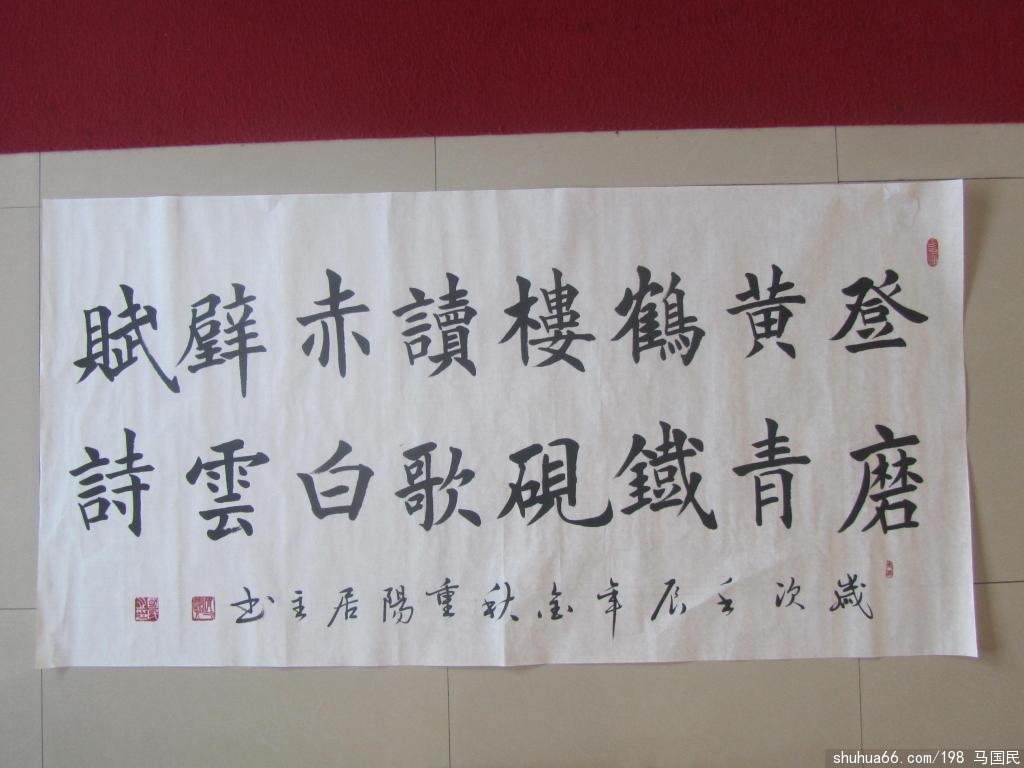 登黄鶴樓讀赤壁賦
磨青鐵硯歌白雲詩
歲次壬辰年金秋重陽居主书
shuhua66.com/198 马国民